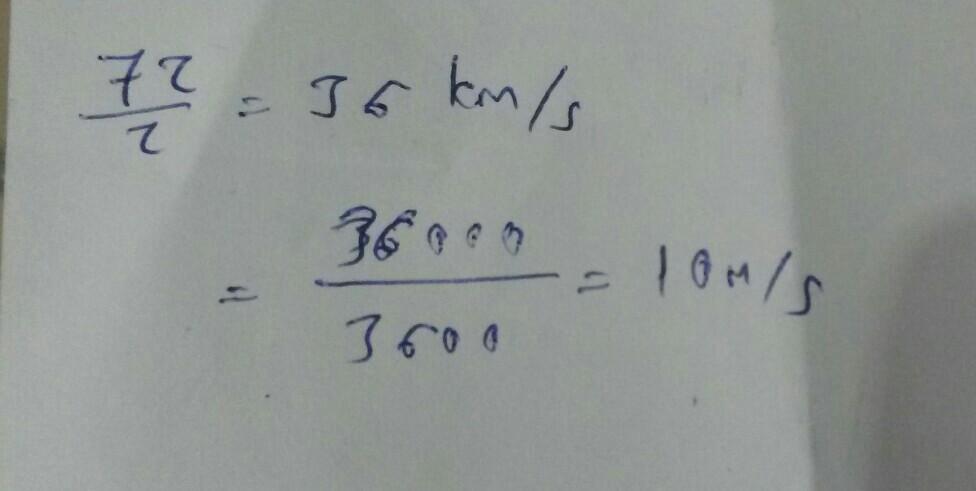 72/2 = 36 km/s
= 36000/3600 = 10 m/s